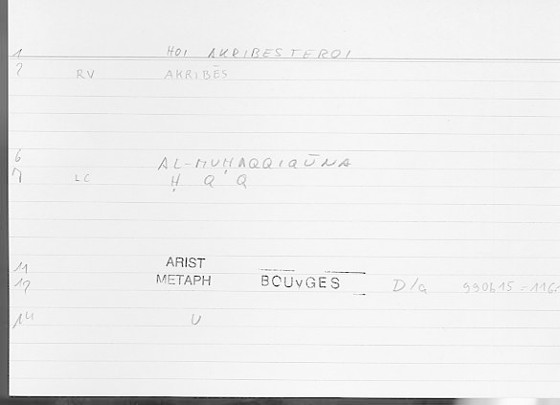 1 HOI AKRIBESTEROI
2 RV AKRIBĒS
6 AL-MUḤAQQIQŪNA
7 LC Ḥ Q Q
11 ARIST
12 METAPH BOUvGES D/a 990b15 = 116,
14 U